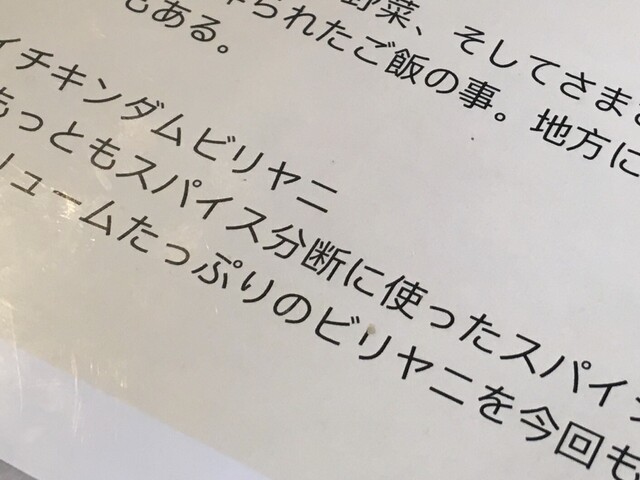 野菜、そしてさまざ
作られたご飯の事。地方に
もある。
イチキンダムビリヤニ
もっともスパイス分断に使ったスパイシ
リュームたっぷりのビリヤニを今回も